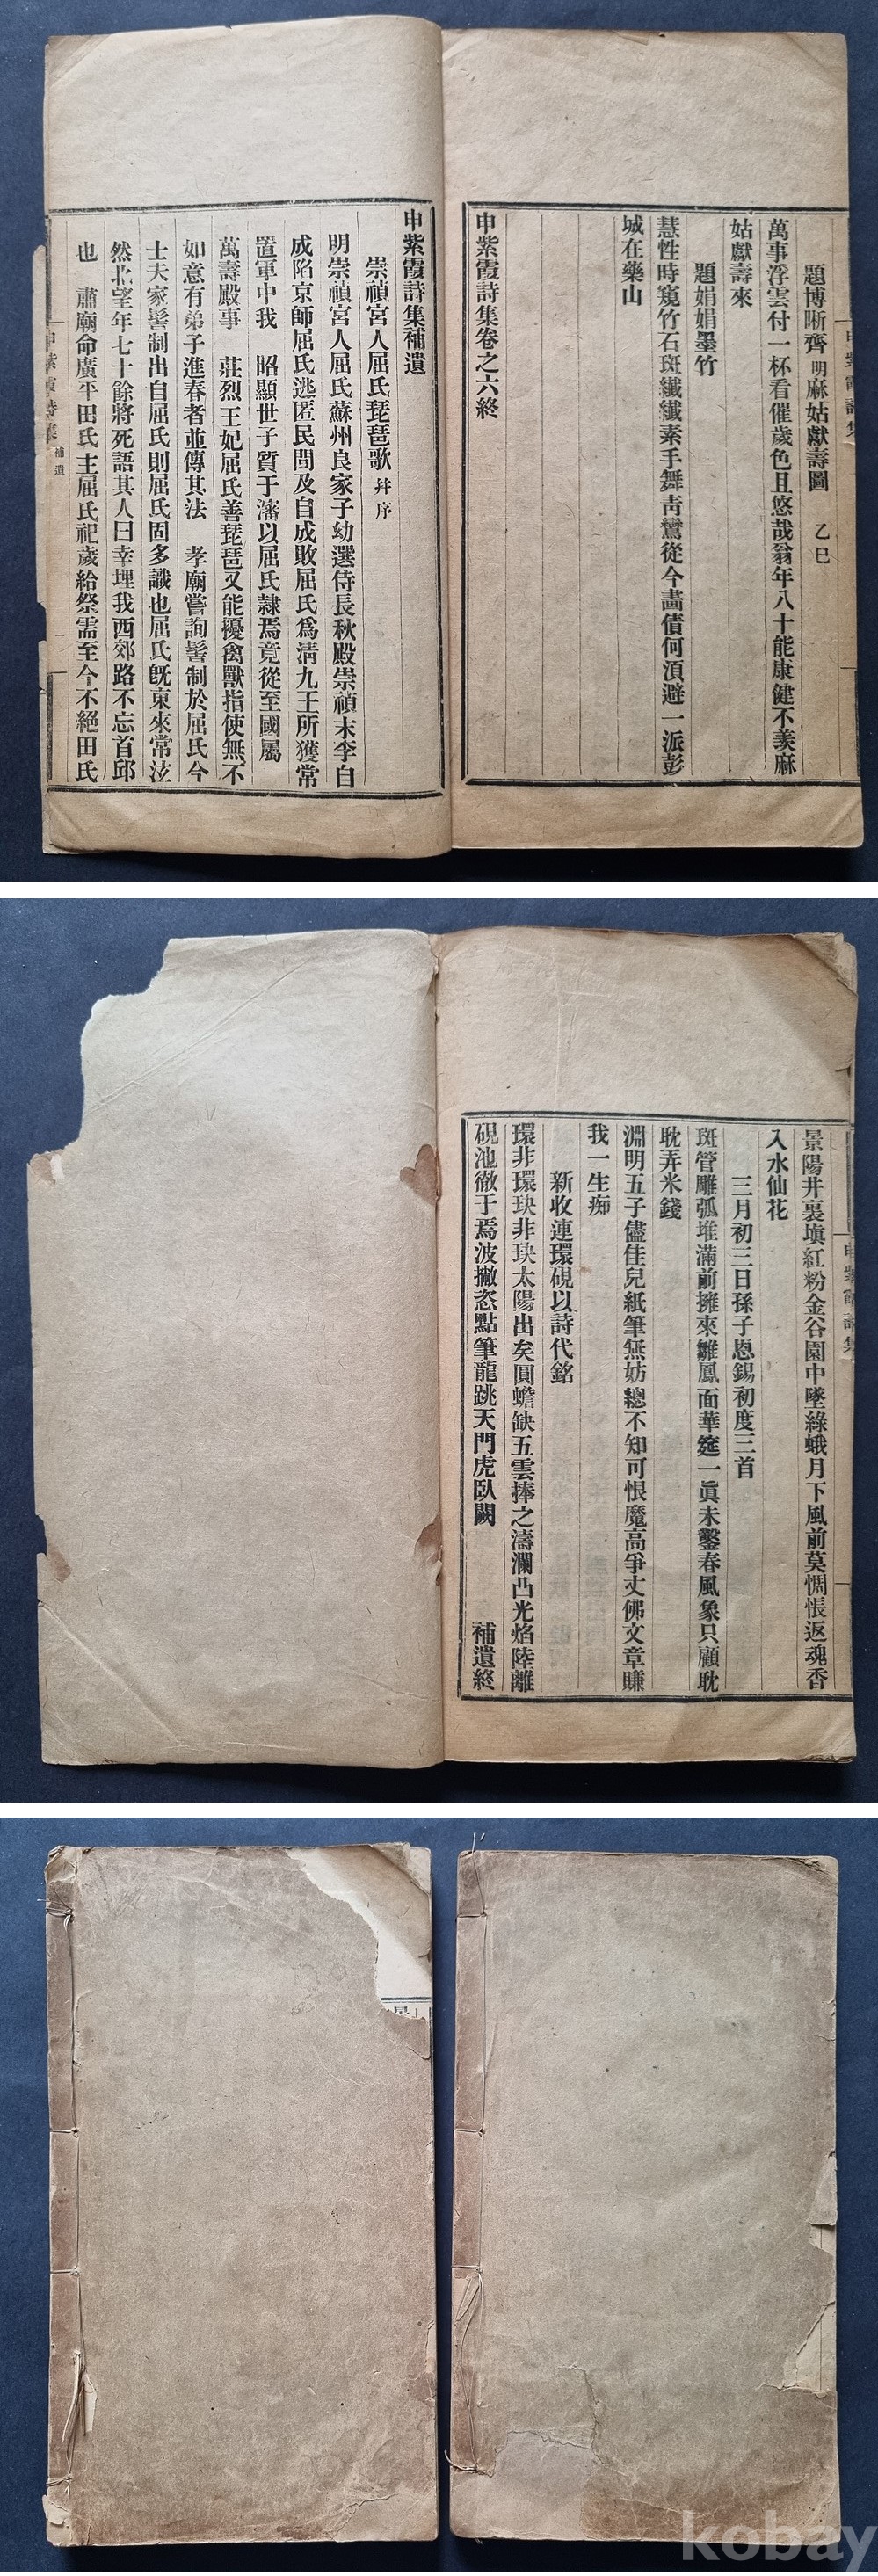 題博晣齊明麻姑獻壽圖 乙巳
萬事浮雲付一杯看催歲色且悠哉翁年八十能康健不羨麻
姑獻壽來
題娟娟墨竹
慧性時窺竹石斑纖纖素手舞靑鸞從今畵債何須避一派彭
城在藥山
申紫霞詩集卷之六終
申紫霞詩集
申紫霞詩集補遺
崇禎宮人屈氏琵琶歌 幷序
明崇禎宮人屈氏蘇州良家子幼選侍長秋殿崇禎末李自
成陷京師屈氏逃匿民間及自成敗屈氏爲淸九王所獲常
置軍中我 昭顯世子質于瀋以屈氏隷焉竟從至國屬
萬壽殿事 莊烈王妃屈氏善琵琶又能擾禽獸指使無不
如意有弟子進春者並傳其法 孝廟嘗詢髻制於屈氏今
士夫家髻制出自屈氏則屈氏固多識也屈氏旣東來常泫
然北望年七十餘將死語其人曰幸埋我西郊路不忘首邱
也 肅廟命廣平田氏主屈氏祀歲給祭需至今不絕田氏
申紫霞詩集 補遺 一
景陽井裏塡紅粉金谷園中墜綠蛾月下風前莫惆悵返魂香
入水仙花
三月初三日孫子恩錫初度三首
斑管雕弧堆滿前擁來雛鳳面華筵一眞未鑿春風象只顧耽
耽弄米錢
淵明五子儘佳兒紙筆無妨總不知可恨魔高爭丈佛文章賺
我一生痴
新收連環硯以詩代銘
環非環玦非玦太陽出矣圓蟾缺五雲捧之濤瀾凸光焰陸離
硯池徹于焉波撇恣點筆龍跳天門虎臥闕 補遺終
申紫霞詩集
kobay